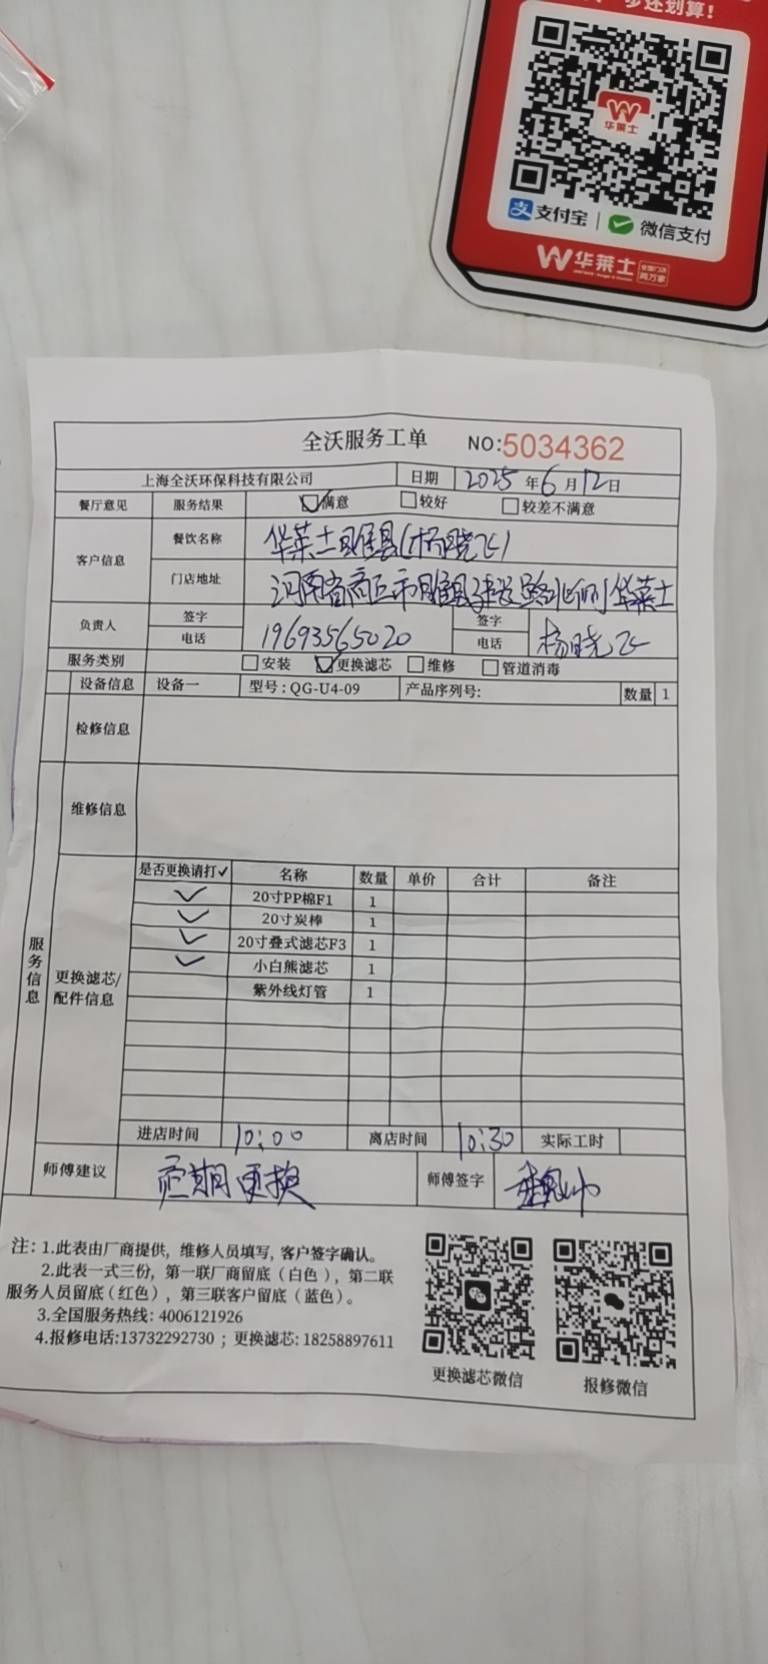 步还划算!
华莱士
支付宝 | 微信支付
华莱士
全沃服务工单 NO:5034362
上海全沃环保科技有限公司 日期 2025年6月12日
餐厅意见 服务结果 满意 较好 较差不满意
客户信息 餐饮名称 华莱士睢县(杨晓飞)
门店地址 河南省商丘市睢县建设路北侧华莱士
负责人 签字 签字
电话 19693565020 电话 杨晓飞
服务类别 安装 更换滤芯 维修 管道消毒
设备信息 设备一 型号:QG-U4-09 产品序列号: 数量 1
检修信息
维修信息
服务信息
更换滤芯/
配件信息
是否更换请打✓ 名称 数量 单价 合计 备注
✓ 20寸PP棉F1 1
✓ 20寸炭棒 1
✓ 20寸叠式滤芯F3 1
✓ 小白熊滤芯 1
紫外线灯管 1
进店时间 10:00 离店时间 10:30 实际工时
师傅建议 定期更换 师傅签字
注:1.此表由厂商提供,维修人员填写,客户签字确认。
2.此表一式三份,第一联厂商留底(白色),第二联
服务人员留底(红色),第三联客户留底(蓝色)。
3.全国服务热线:4006121926
4.报修电话:13732292730;更换滤芯:18258897611
更换滤芯微信 报修微信